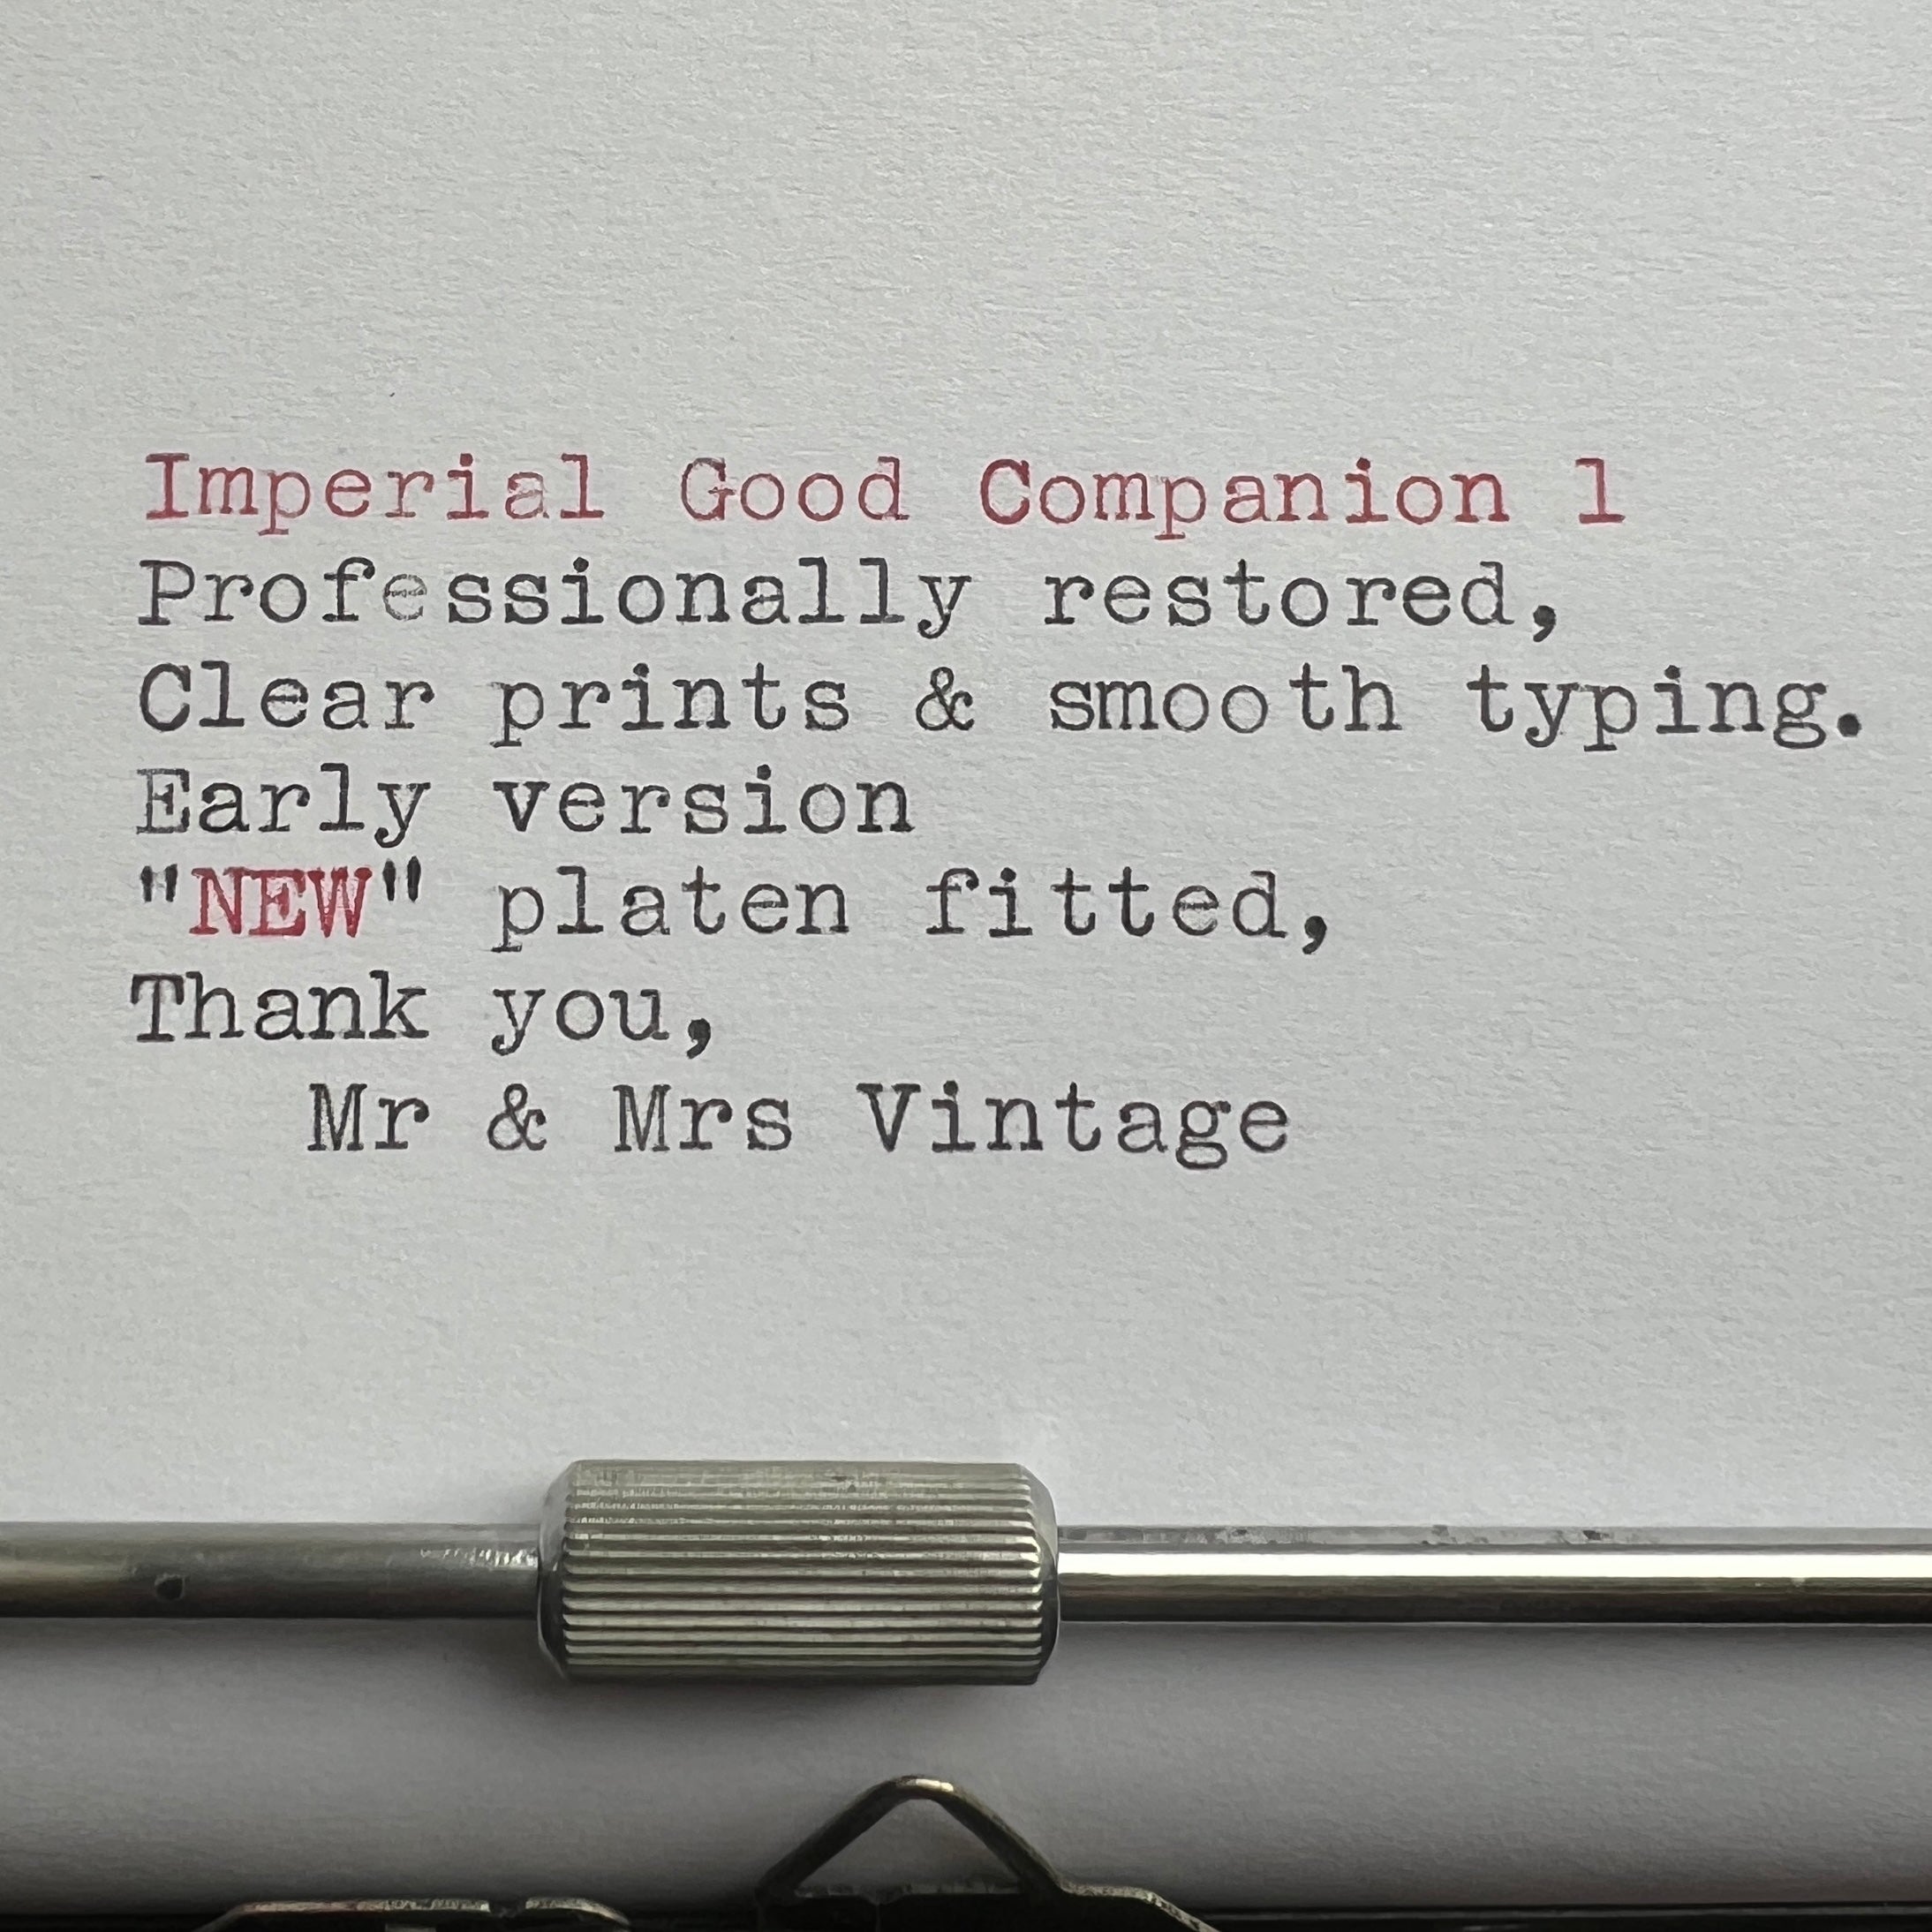 Imperial Good Companion 1
Professionally restored,
Clear prints & smooth typing.
Early version
"NEW" platen fitted,
Thank you,
Mr & Mrs Vintage